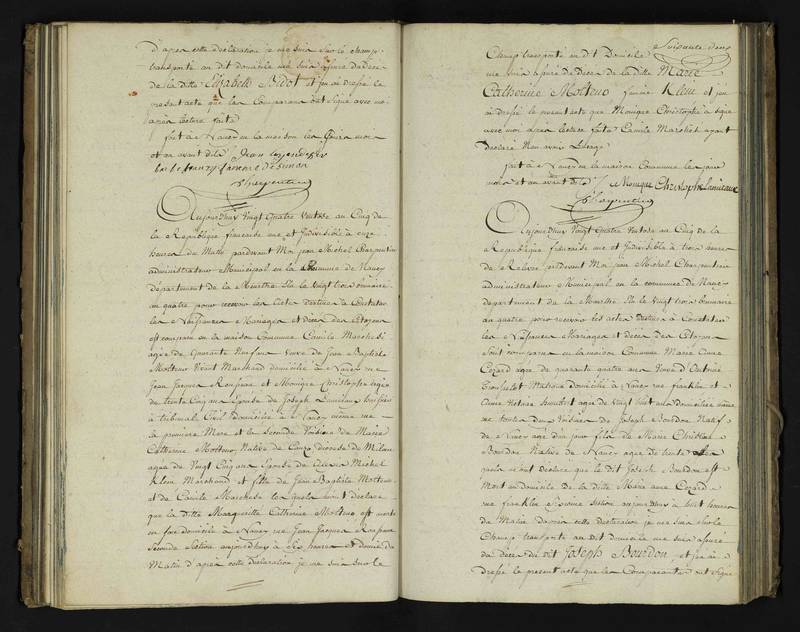 d'apres cette déclaration je me suis sur le champ
transporté au dit domicile me suis assuré du décès
de la ditte Elizabeth Bidot et j'en ai dressé le
present acte que les Comparans ont signé avec moi
après lecture faite
fait à Nancy en la maison les jour mois
et an avant dits
Charpentier
Aujourd'huy Vingt Quatre Ventose au Cinq de
la République française une et Indivisible à onze
heures du Matin pardevant Moi jean Michel Charpentier
administrateur Municipal en la Commune de Nancy
département de la Meurthe élu le Vingt trois brumaire
an quatre pour recevoir les actes destinés à Constater
les Naissances Mariages et décès des Citoyens
est comparue en la maison Commune Camile Marchesi
agée de Quarante Neuf ans Veuve de Jean Baptiste
Motteno Vivant Marchand domiciliée à Nancy rue
Jean Jacques Rousseau et Monique Christophe agée
de trente Cinq ans Epouse de Joseph Lamiraux huissier
à tribunal Civil domiciliée à Nancy même rue
la premiere Mere et la seconde Voisine de Marie
Catherine Motteno Native de diocese de Milan
agée de Vingt Cinq ans Epouse de Michel
Klein Marchand et fille de Jean Baptiste Motteno
et de Camile Marchesi les quels m'ont déclaré
que la ditte Margueritte Catherine Motteno est morte
en son domicile à Nancy rue Jean Jacques Rousseau
Seconde Section aujourd'huy à dix heures et demie du
Matin d'après cette déclaration je me suis sur le
Champ transporté au dit Domicile
me suis assuré du décès de la ditte Marie
Catherine Motteno femme Klein et j'en
ai dressé le present acte que Monique Christophe a signé
avec moi après lecture faite Camile Marchesi ayant
déclaré N'en avoir L'usage
fait à Nancy en la maison Commune les jour
mois et an avant dits Monique Christophe Lamiraux
Charpentier
Aujourd'huy Vingt Quatre Ventose au Cinq de la
République française une et Indivisible à trois heures
de Relevée pardevant Moi jean Michel Charpentier
administrateur Municipal en la commune de Nancy
departement de la Meurthe élu le Vingt trois brumaire
an quatre pour recevoir les actes destinés à Constater
les Naissances Mariages et décès des Citoyens
Sont comparus en la maison Commune Marie Anne
Cozard agée de quarante quatre ans Veuve d'Antoine
domiciliée à Nancy rue franklin et
agée de Vingt huit ans domiciliée même
rue toutes deux Voisines de Joseph Bourdon Natif
de Nancy agé d'un jour fils de Marie Christine
Bourdon Native de Nancy agée de trente ans
les quels m'ont déclaré que le dit Joseph Bourdon est
Mort au domicile de la ditte Marie anne Cozard
rue franklin Section aujourd'huy à huit heures
du Matin D'apres cette déclaration je me suis sur le
Champ transporté au dit Domicile me suis assuré
du décès du dit Joseph Bourdon et j'en ai
dressé le present acte que les Comparantes ont signé